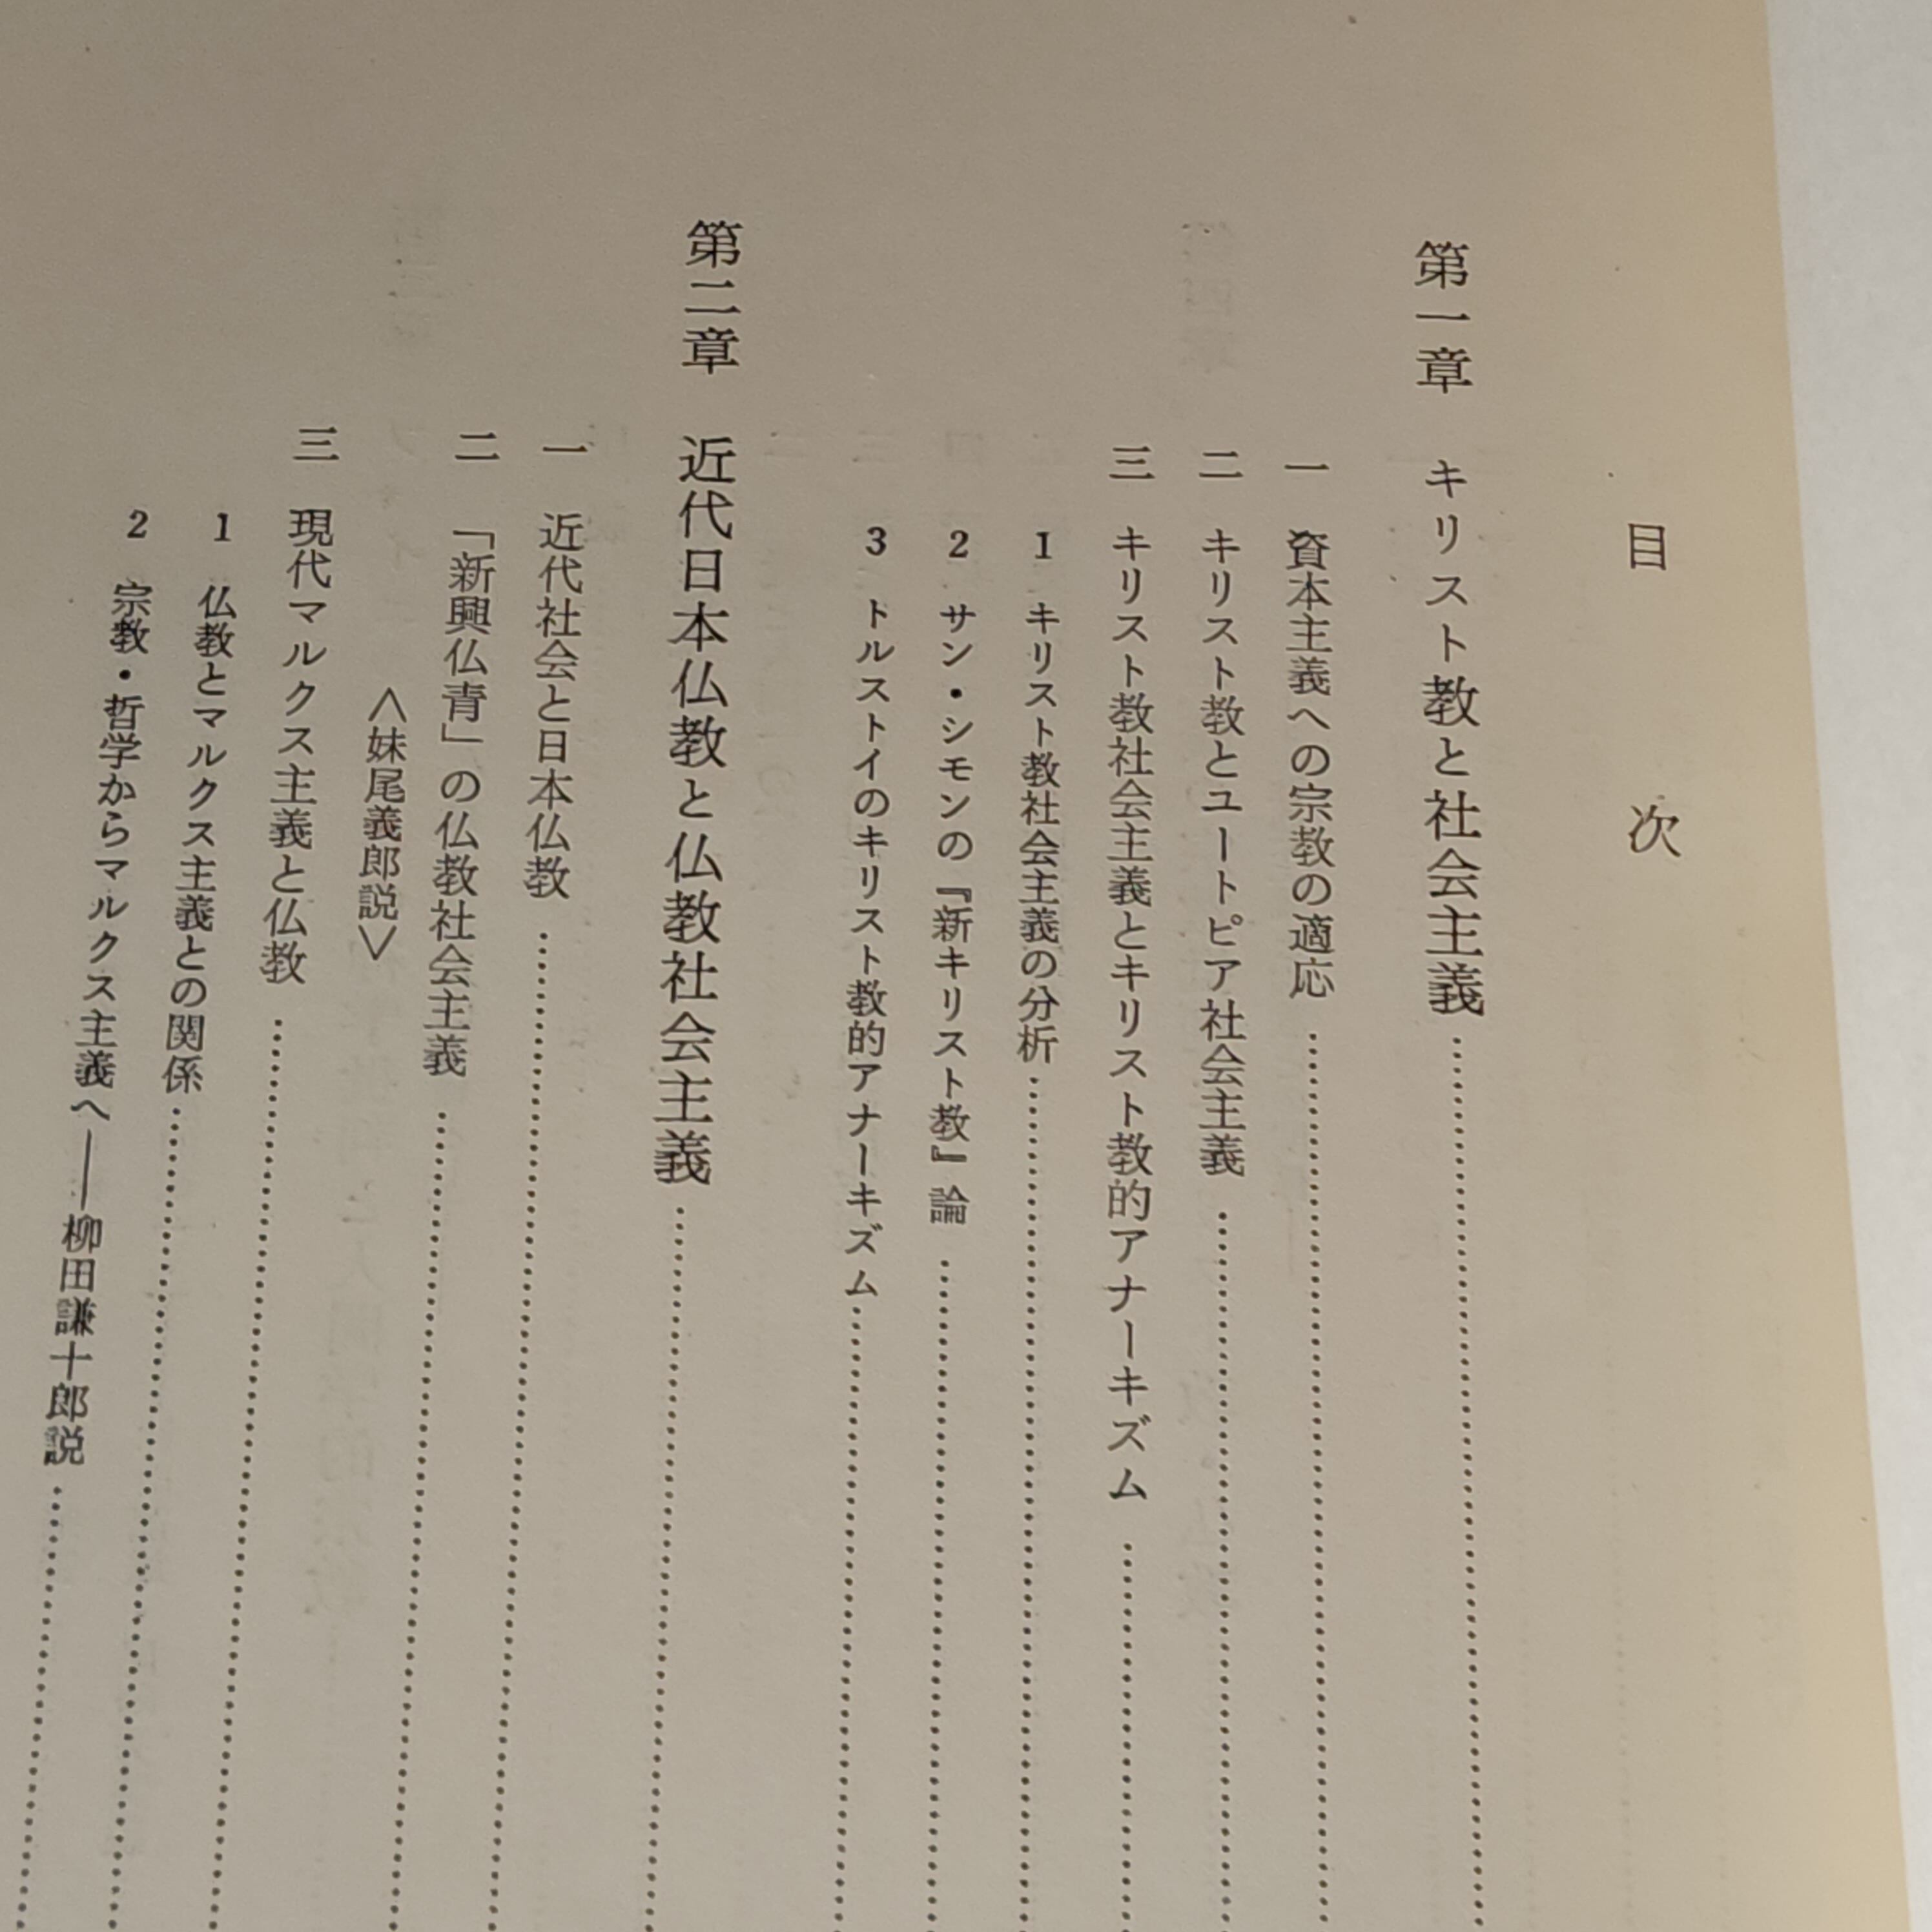 目次
第一章 キリスト教と社会主義
一 資本主義への宗教の適応
二 キリスト教とユートピア社会主義
三 キリスト教社会主義とキリスト教的アナーキズム
1 キリスト教社会主義の分析
2 サン・シモンの『新キリスト教』論
3 トルストイのキリスト教的アナーキズム
第二章 近代日本仏教と仏教社会主義
一 近代社会と日本仏教
二 「新興仏青」の仏教社会主義
〈妹尾義郎説〉
三 現代マルクス主義と仏教
1 仏教とマルクス主義との関係
2 宗教・哲学からマルクス主義へ――柳田謙十郎説